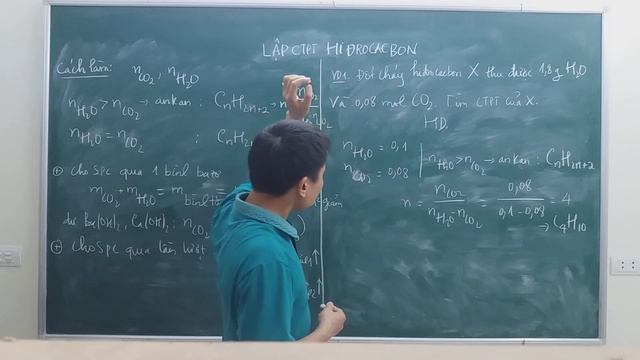 LẬP CTPT HIĐROCACBON
Cách làm: nCO2, nH2O
nH2O > nCO2 → ankan: CnH2n+2 →
nH2O = nCO2 : CnH2n
⊕ cho SPC qua 1 bình
mCO2 + mH2O = m bình
dư Ba(OH)2, Ca(OH)2: nCO2
⊕ cho SPC qua lần lượt
VD1. Đốt cháy hiđrocacbon X thu được 1,8g H2O
và 0,08 mol CO2. Tìm CTPT của X.
HD.
nH2O = 0,1
nCO2 = 0,08
nH2O > nCO2 → ankan: CnH2n+2
n = nCO2 / nH2O - nCO2 = 0,08 / 0,1 - 0,08 = 4
→ C4H10